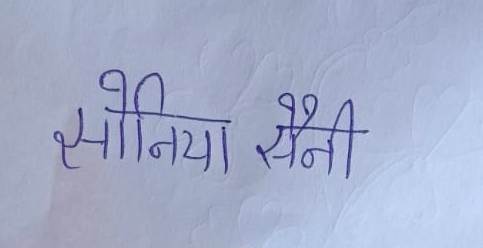 सोनिया सैनी